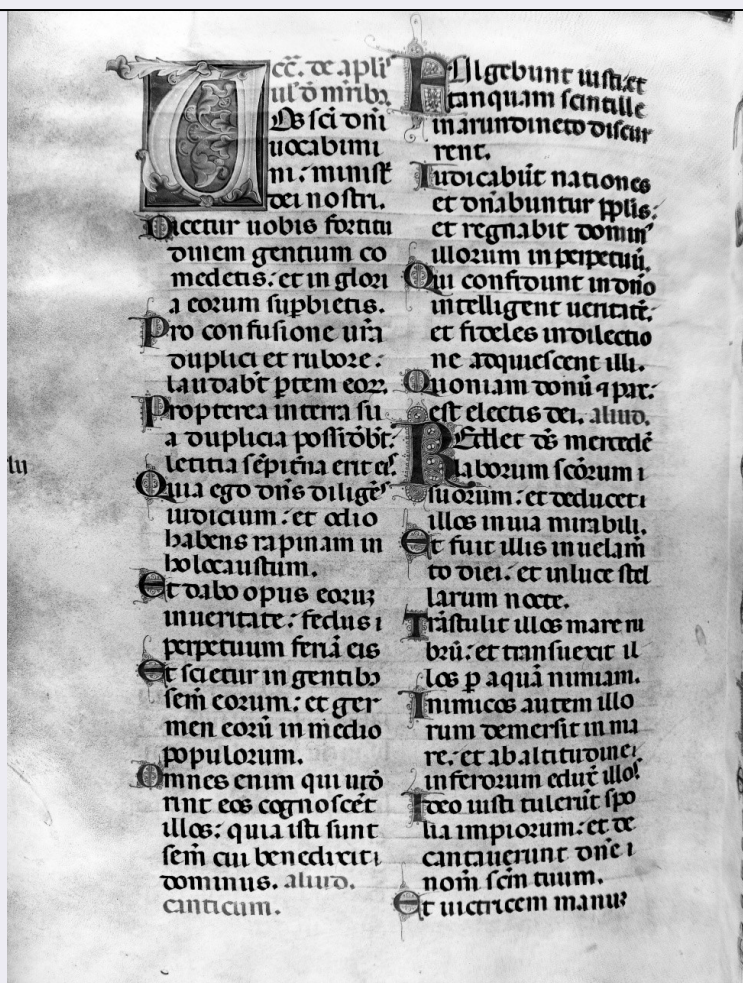 cc̄. de apl'i
ul' ō mr̄ibꝫ
Vos sc̄i dn̄i
uocabimi
ni: minist̄
dei nostri.
Dicetur uobis fortitu
dinem gentium co
medetis: et in glori
a eorum sup̄bietis.
Pro confusione ur̄a
duplici et rubore:
laudab̄t p̄tem eoꝝ.
Propterea in terra su
a duplicia possideb̄t:
letitia sēpit̄na erit eis.
Quia ego dn̄s diligēs
iudicium: et odio
habens rapinam in
holocaustum.
Et dabo opus eoruꝫ
in ueritate: fedus i
perpetuum feriā eis
Et scietur in gentibꝫ
sem̄ eorum: et ger
men eorū in medio
populorum.
Omnes enim qui uidē
rint eos cognoscēt
illos: quia isti sunt
sem̄ cui benedixit
dominus. aliud.
canticum.
Fulgebunt iusti: et
tanquam scintille
in arundineto discur
rent.
Iudicabūt nationes
et dn̄abuntur ppl̄is:
et regnabit domin'
illorum in perpetuū.
Qui confidunt in dn̄o
intelligent ueritatē:
et fideles in dilectio
ne adquiescent illi.
Quoniam donū ⁊ pax:
est electis dei. aliud.
Reddet ds̄ mercedē
laborum scōrum
suorum: et deducet
illos in uia mirabili.
Et fuit illis in uelam̄
to diei: et in luce stel
larum nocte.
Trāstulit illos mare ru
brū: et transuexit il
los p aquā nimiam.
Inimicos autem illo
rum demersit in ma
re: et ab altitudine
inferorum eduxit illos.
Ideo iusti tulerūt spo
lia impiorum: et de
cantauerunt dn̄e
nom̄ sc̄m tuum.
Et uictricem manuꝫ